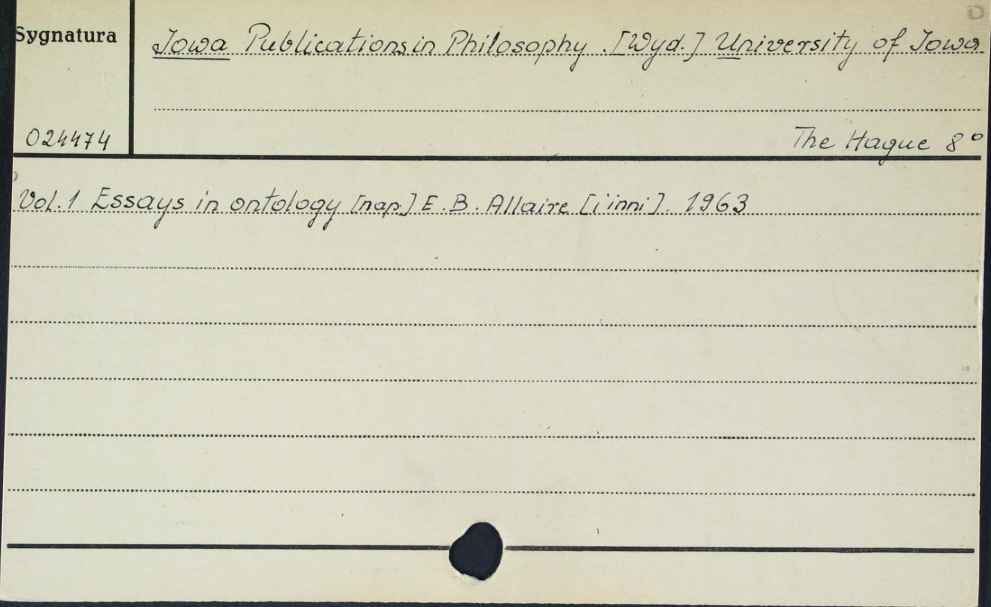 Sygnatura
Iowa Publications in Philosophy. [Wyd.] University of Iowa
024474
The Hague 8°
Vol. 1 Essays in ontology [nap.] E. B. Allaire [i inni]. 1963